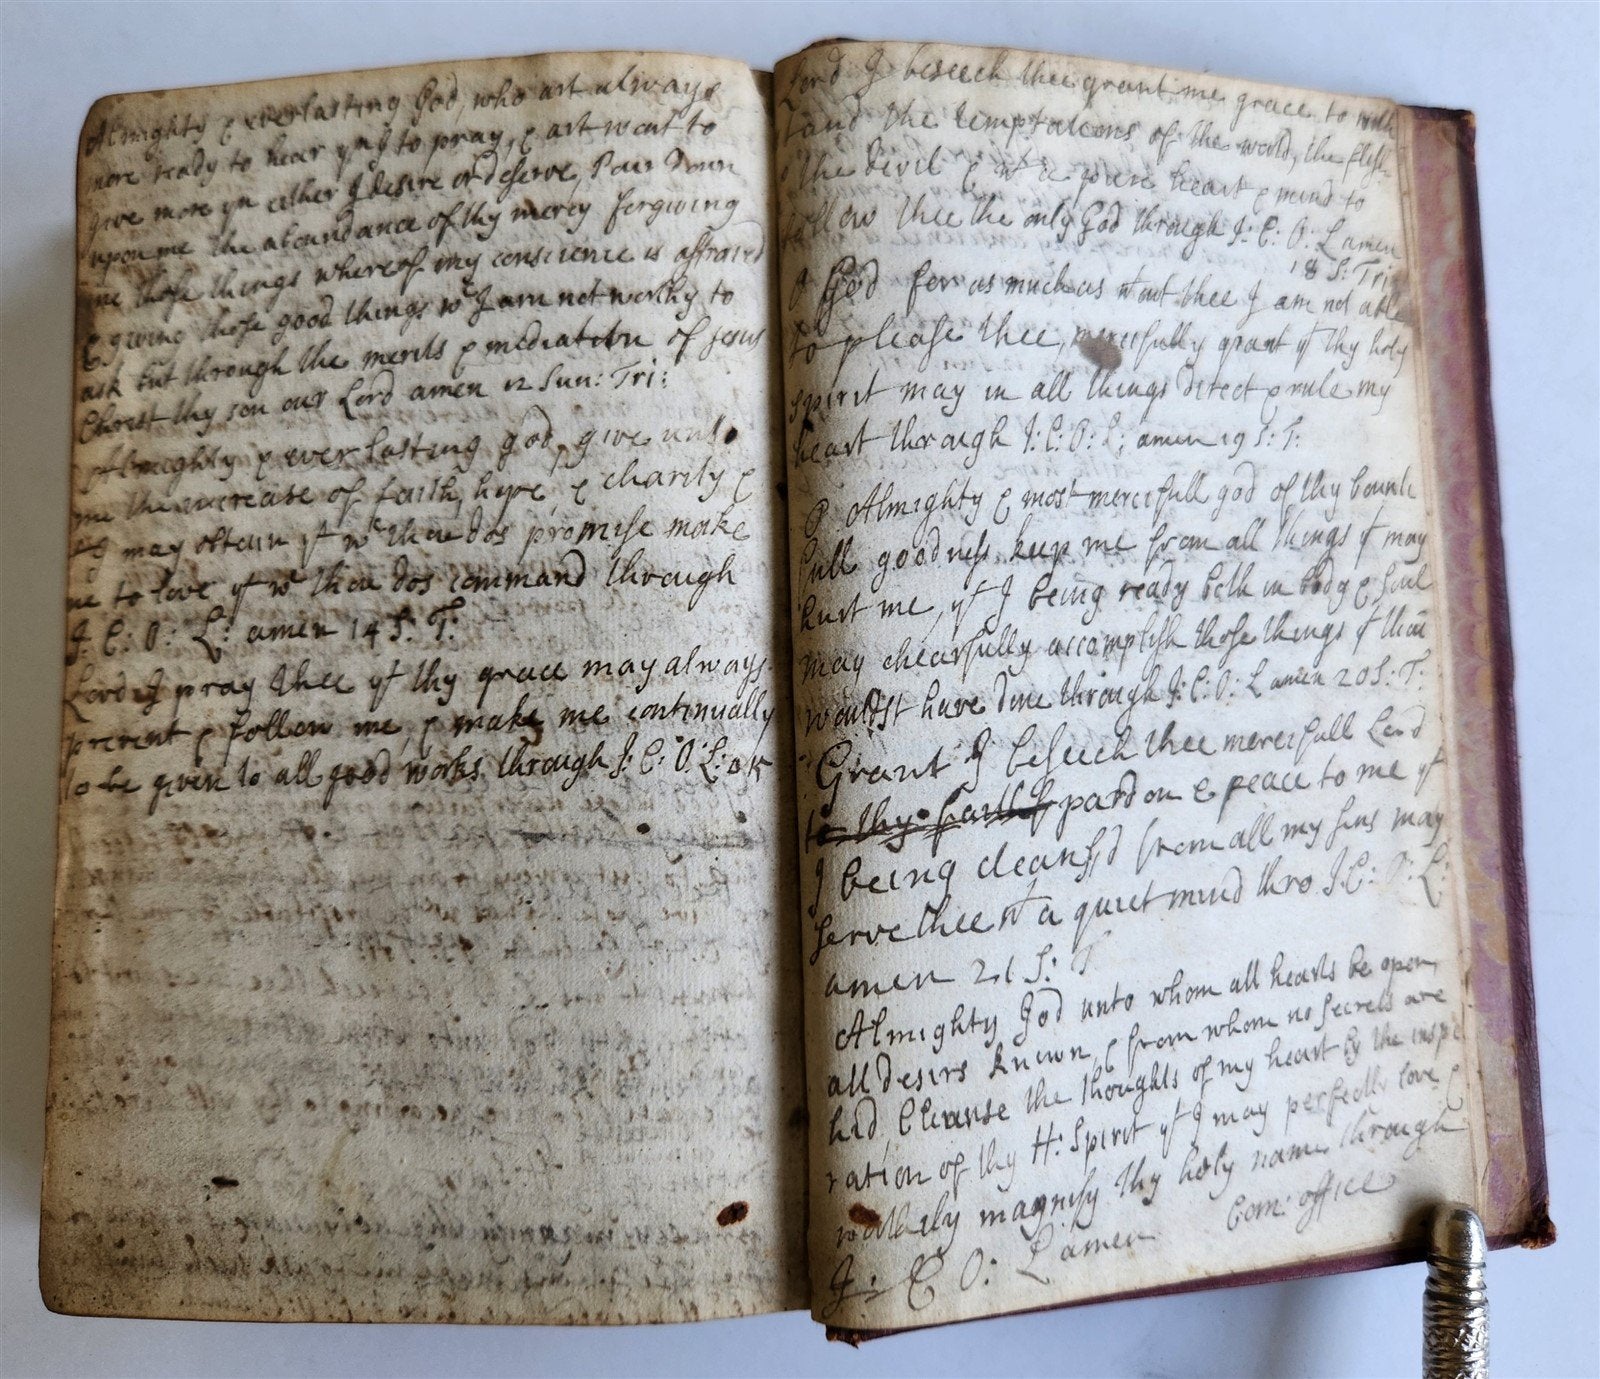 Almighty & everlasting God, who art always
more ready to hear yn I to pray, & art wont to
give more yn either I desire or deserve, Pour Down
upon me the abundance of thy mercy forgiving
me those things whereof my conscience is affraied
& giving those good things wc I am not worthy to
ask but through the merits & mediation of Jesus
Christ thy son our Lord amen 12 Sun: Tri:
Almighty & everlasting god, give unto
me the increase of faith, hope, & charity &
yt I may obtain yt wc thou dos promise make
me to love yt wc thou dos command through
J: C: O: L: amen 14 S: T:
Lord I pray thee yt thy grace may always
prevent & follow me, & make me continually
to be given to all good works through J: C: O: L: a
Lord I beseech thee grant me grace to with
stand the temptations of the world, the flesh
& the Devil & wt a pure heart & mind to
follow thee the only God through J: C: O: L amen
18 S: Tri
O God for as much as wtout thee I am not able
to please thee, mercifully grant yt thy holy
spirit may in all things Direct & rule my
heart through J: C: O: L: amen 19 S: T:
O Almighty & most mercifull god of thy bounti
full goodness keep me from all things yt may
hurt me, yt I being ready both in body & soul
may chearfully accomplish those things yt thou
wouldst have Done through J: C: O: L amen 20 S: T:
Grant I beseech thee mercifull Lord
to thy faithf pardon & peace to me yt
I being cleansd from all my sins may
serve thee wt a quiet mind thro J: C: O: L:
amen 21 S: T
Almighty God unto whom all hearts be open,
all Desirs known, & from whom no secrets are
hid, Cleanse the thoughts of my heart by the inspi
ration of thy H: Spirit yt I may perfectly love &
worthily magnify thy holy name through
J: C O: L amen Com: office